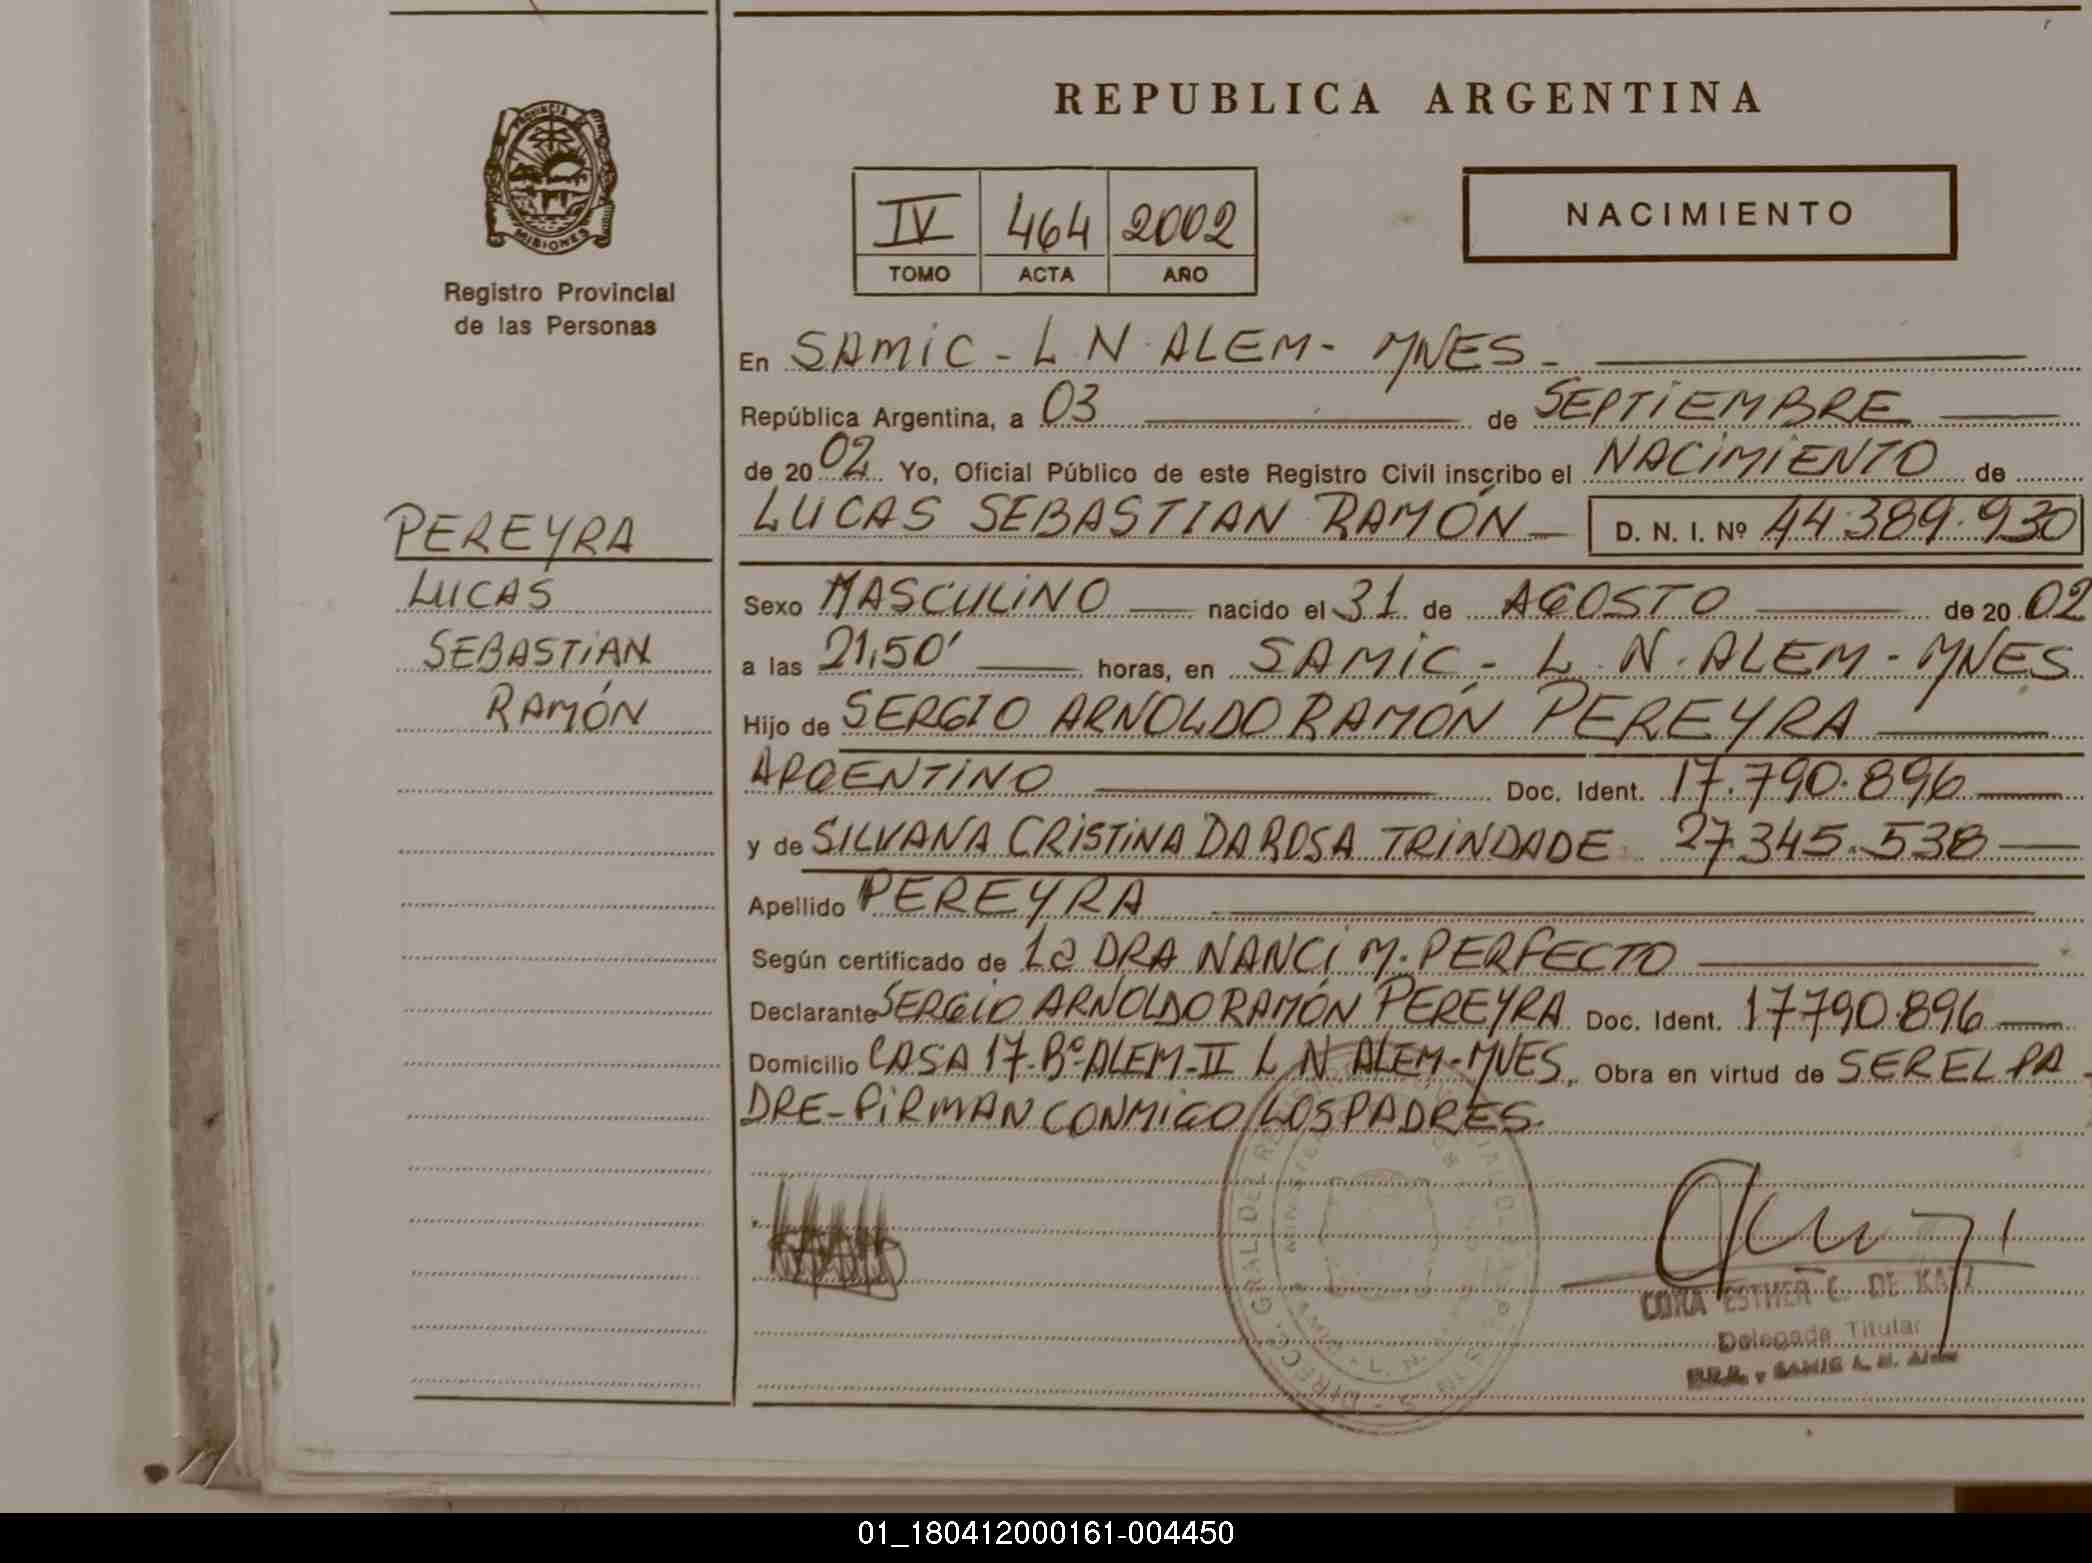 REPUBLICA ARGENTINA
PROVINCIA DE
MISIONES
Registro Provincial
de las Personas
IV 464 2002
TOMO ACTA AÑO
NACIMIENTO
En SAMIC - L. N. ALEM - MNES -
República Argentina, a 03 de SEPTIEMBRE
de 20 02 Yo, Oficial Público de este Registro Civil inscribo el NACIMIENTO de
LUCAS SEBASTIAN RAMÓN — D. N. I. Nº 44.389.930
PEREYRA
LUCAS
SEBASTIAN
RAMÓN
Sexo MASCULINO — nacido el 31 de AGOSTO de 20 02
a las 21,50' horas, en SAMIC - L. N. ALEM - MNES
Hijo de SERGIO ARNOLDO RAMÓN PEREYRA
ARGENTINO Doc. Ident. 17.790.896
y de SILVANA CRISTINA DA ROSA TRINDADE 27.345.538
Apellido PEREYRA
Según certificado de la DRA NANCI M. PERFECTO
Declarante SERGIO ARNOLDO RAMÓN PEREYRA Doc. Ident. 17790.896
Domicilio CASA 17-Bº-ALEM-II L N ALEM-MNES, Obra en virtud de SER EL PA-
DRE-FIRMAN CONMIGO LOS PADRES.
CORA ESTHER C. DE KATZ
Delegada Titular
01_180412000161-004450